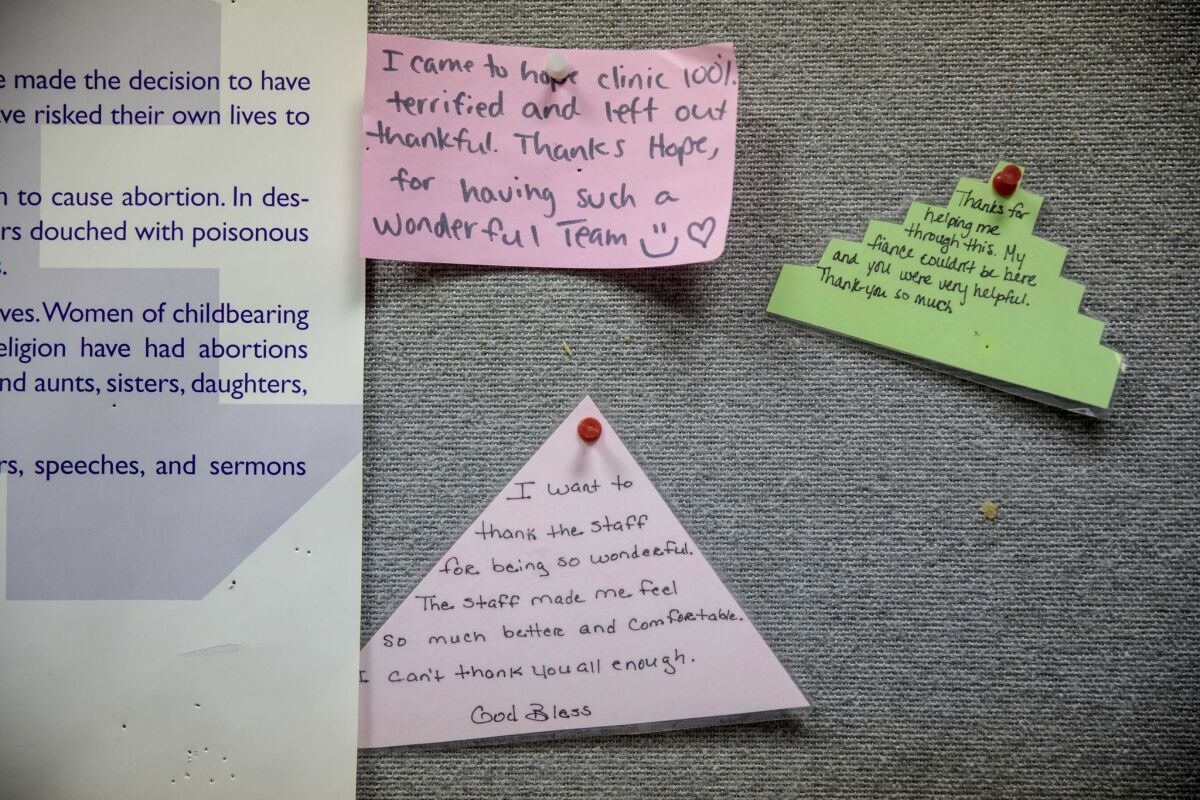 e made the decision to have
ve risked their own lives to
n to cause abortion. In des-
rs douched with poisonous
s.
ves. Women of childbearing
eligion have had abortions
nd aunts, sisters, daughters,
rs, speeches, and sermons
I came to hope clinic 100%
terrified and left out
thankful. Thanks Hope,
for having such a
wonderful Team
Thanks for
helping me
through this. My
fiance couldn't be here
and you were very helpful.
Thank you so much
I want to
thank the staff
for being so wonderful.
The staff made me feel
so much better and comfortable.
I can't thank you all enough.
God Bless